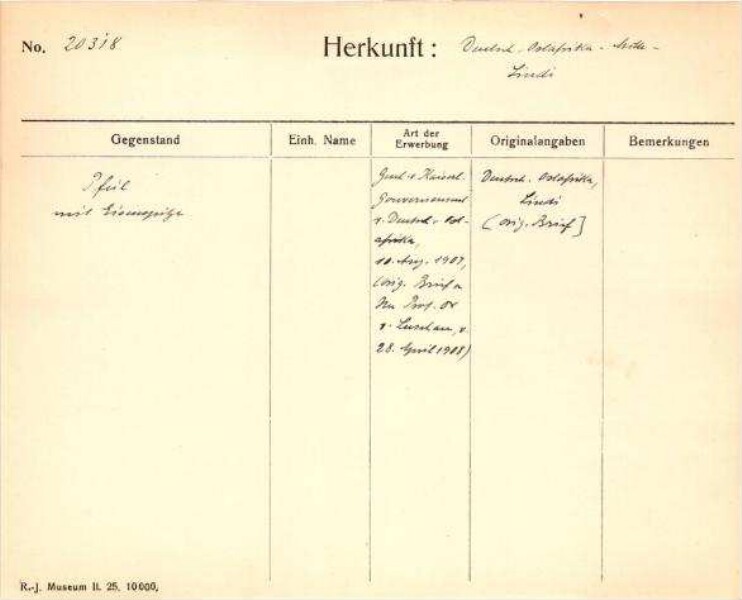 No. 20318
Herkunft: Deutsch-Ostafrika -
Lindi
Gegenstand
Einh. Name
Art der
Erwerbung
Originalangaben
Bemerkungen
Pfeil
mit Eisenspitze
v. Kaiserl.
Gouvernement
v. Deutsch-Ost-
afrika,
10. Aug. 1907,
(orig. Brief
Prof. Dr
v. Luschan, v.
28. April 1908)
Deutsch-Ostafrika,
Lindi
(orig. Brief]
R.-J. Museum II. 25. 10000,